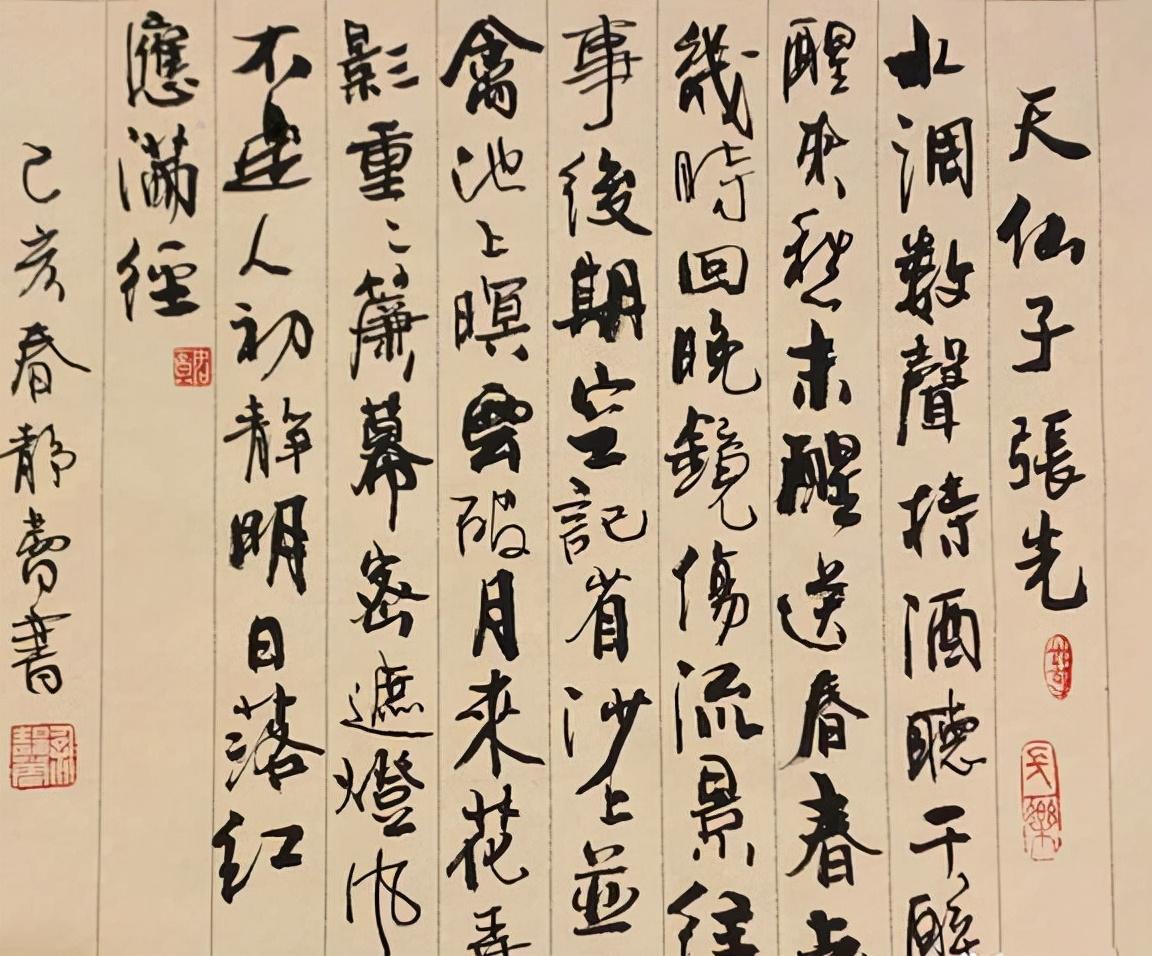 天仙子張先
水調數聲持酒聽午醉
醒來愁未醒送春春去
幾時回晚鏡傷流景往
事後期空記省沙上並
禽池上暝雲破月來花弄
影重〻簾幕密遮燈風
不定人初靜明日落紅
應滿徑
己亥春靜書